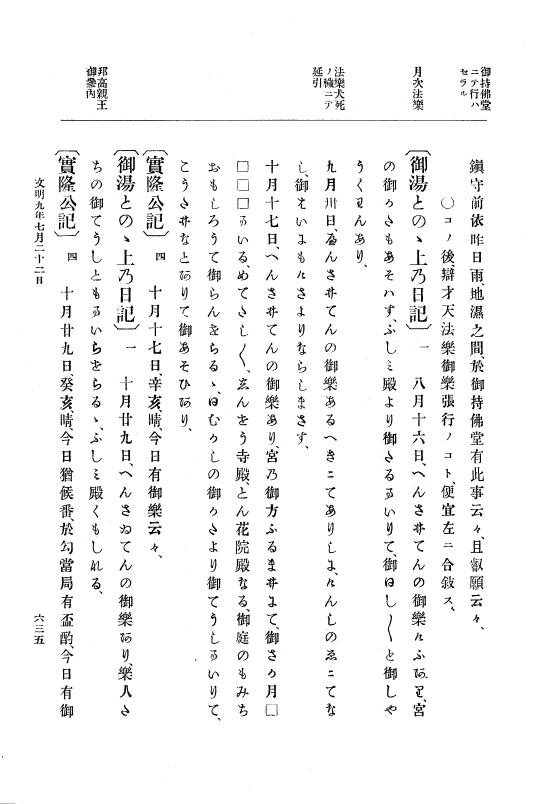 御持佛堂
ニテ行ハ
セラル
月次法樂
法樂犬死
ノ穢ニテ
延引
邦高親王
御參內
鎭守前依昨日雨、地濕之間、於御持佛堂有此事云々、且叡願云々、
〇コノ後、辯才天法樂御樂張行ノコト、便宜左ニ合敍ス、
〔御湯とのゝ上乃日記〕一 八月十六日、へんさ井てんの御樂
の御かさもあそハす、ふしミ殿より御さるまいりて、御しや
うくゎんあり、
九月卅日、へんさ井てんの御樂あるへきにてありしよ、
し、御さよりならしまさす、
十月十七日、へんさ井てんの御樂あり、宮乃御方ふるま井まて、御さか月□
□□□まいる、めてさし〳〵、ゑんをう寺殿、とん花院殿なる、御庭のもみち
おもしろうて御らんをらるゝ、むしの御かさより御てうしまいりて、
こうさ井なとありて御あそひあり、
〔實隆公記〕四 十月十七日、辛亥、晴、今日有御樂云々、
〔御湯とのゝ上乃日記〕一 十月廿九日、へんさゐてんの御樂あり、樂人さ
ちの御てうしともまいらをらるゝ、ふしミ殿くもしれる、
〔實隆公記〕四 十月廿九日、癸亥、晴、今日猶候番、於勾當局有盃酌、今日有御
文明九年七月二十二日
六三五